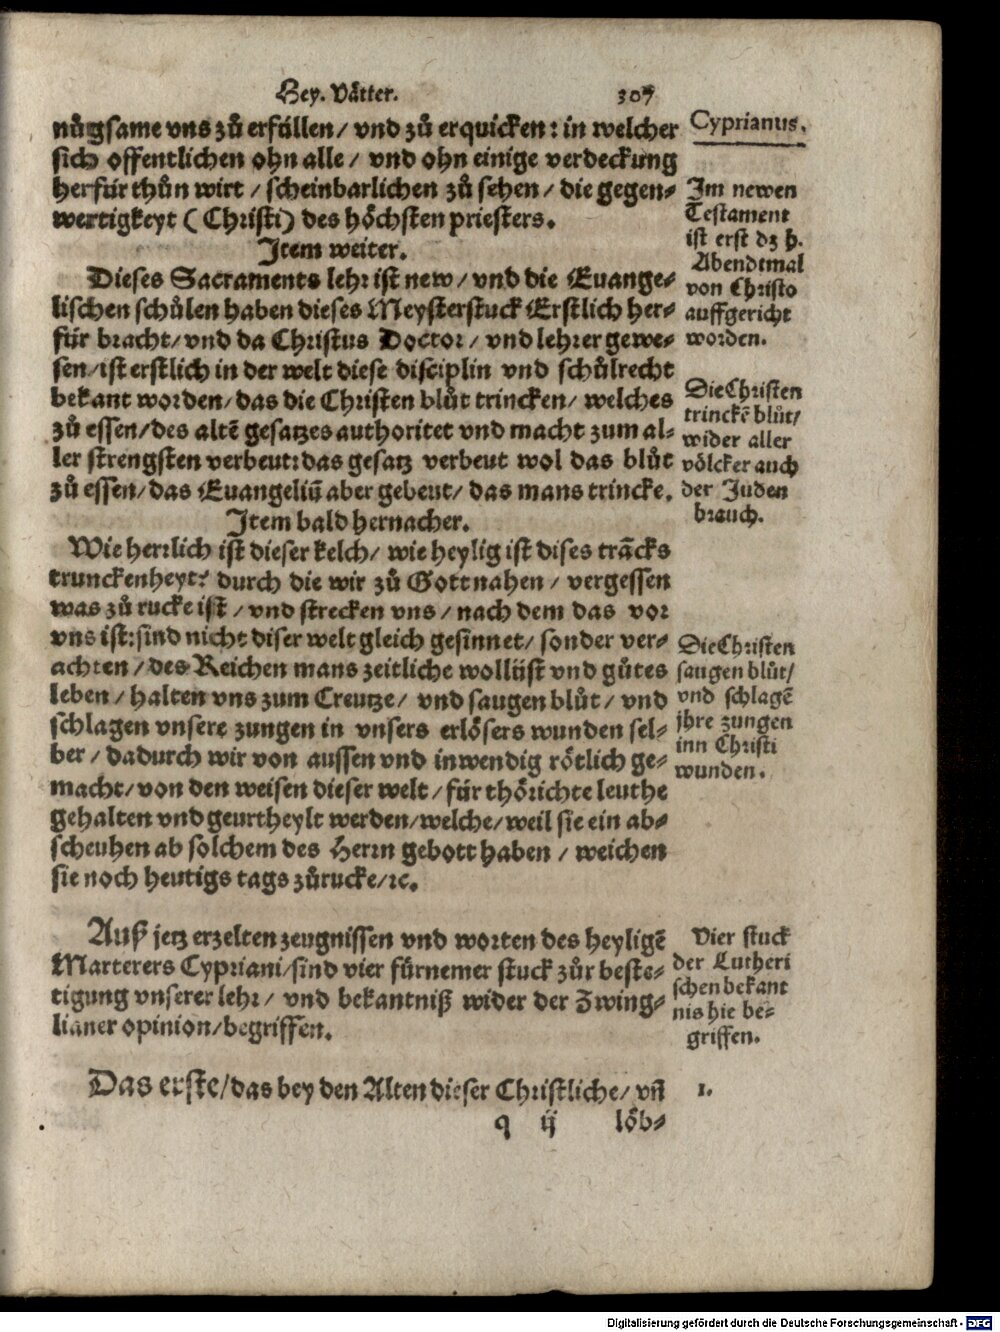 Hey. Våtter.
307
nůgsame vns zů erfüllen/ vnd zů erquicken: in welcher
sich offentlichen ohn alle/ vnd ohn einige verdeckung
herfür thůn wirt/ scheinbarlichen zů sehen/ die gegen⸗
wertigkeyt (Christi) des höchsten priesters.
Item weiter.
Dieses Sacraments lehr ist new/ vnd die Euange⸗
lischen schůlen haben dieses Meysterstuck Erstlich her⸗
für bracht/ vnd da Christus Doctor/ vnd lehrer gewe⸗
sen/ ist erstlich in der welt diese disciplin vnd schůlrecht
bekant worden/ das die Christen blůt trincken/ welches
zů essen/ des altẽ gesatzes authoritet vnd macht zum al⸗
ler strengsten verbeut: das gesatz verbeut wol das blůt
zů essen/ das Euangeliũ aber gebeut/ das mans trincke.
Item bald hernacher.
Wie herrlich ist dieser kelch/ wie heylig ist dises trãcks
trunckenheyt? durch die wir zů Gott nahen/ vergessen
was zů rucke ist/ vnd strecken vns/ nach dem das vor
vns ist: sind nicht diser welt gleich gesinnet/ sonder ver⸗
achten/ des Reichen mans zeitliche wollüst vnd gůtes
leben/ halten vns zum Creutze/ vnd saugen blůt/ vnd
schlagen vnsere zungen in vnsers erlösers wunden sel⸗
ber/ dadurch wir von aussen vnd inwendig rötlich ge⸗
macht/ von den weisen dieser welt/ für thörichte leuthe
gehalten vnd geurtheylt werden/ welche/ weil sie ein ab⸗
scheuhen ab solchem des Herrn gebott haben/ weichen
sie noch heutigs tags zůrucke/ ꝛc.
Auß jetz erzelten zeugnissen vnd worten des heyligẽ
Marterers Cypriani/ sind vier fürnemer stuck zůr beste⸗
tigung vnserer lehr/ vnd bekantniß wider der Zwing⸗
lianer opinion/ begriffen.
Das erste/ das bey den Alten dieser Christliche/ vñ
q ij
löb⸗
Cyprianus.
Im newen
Testament
ist erst dz h.
Abendtmal
von Christo
auffgericht
worden.
Die Christen
trinckẽ blůt/
wider aller
völcker auch
der Juden
brauch.
Die Christen
saugen blůt/
vnd schlagẽ
jhre zungen
inn Christi
wunden.
Vier stuck
der Lutheri
schen bekant
nis hie be⸗
griffen.
1.
Digitalisierung gefördert durch die Deutsche Forschungsgemeinschaft - DFG